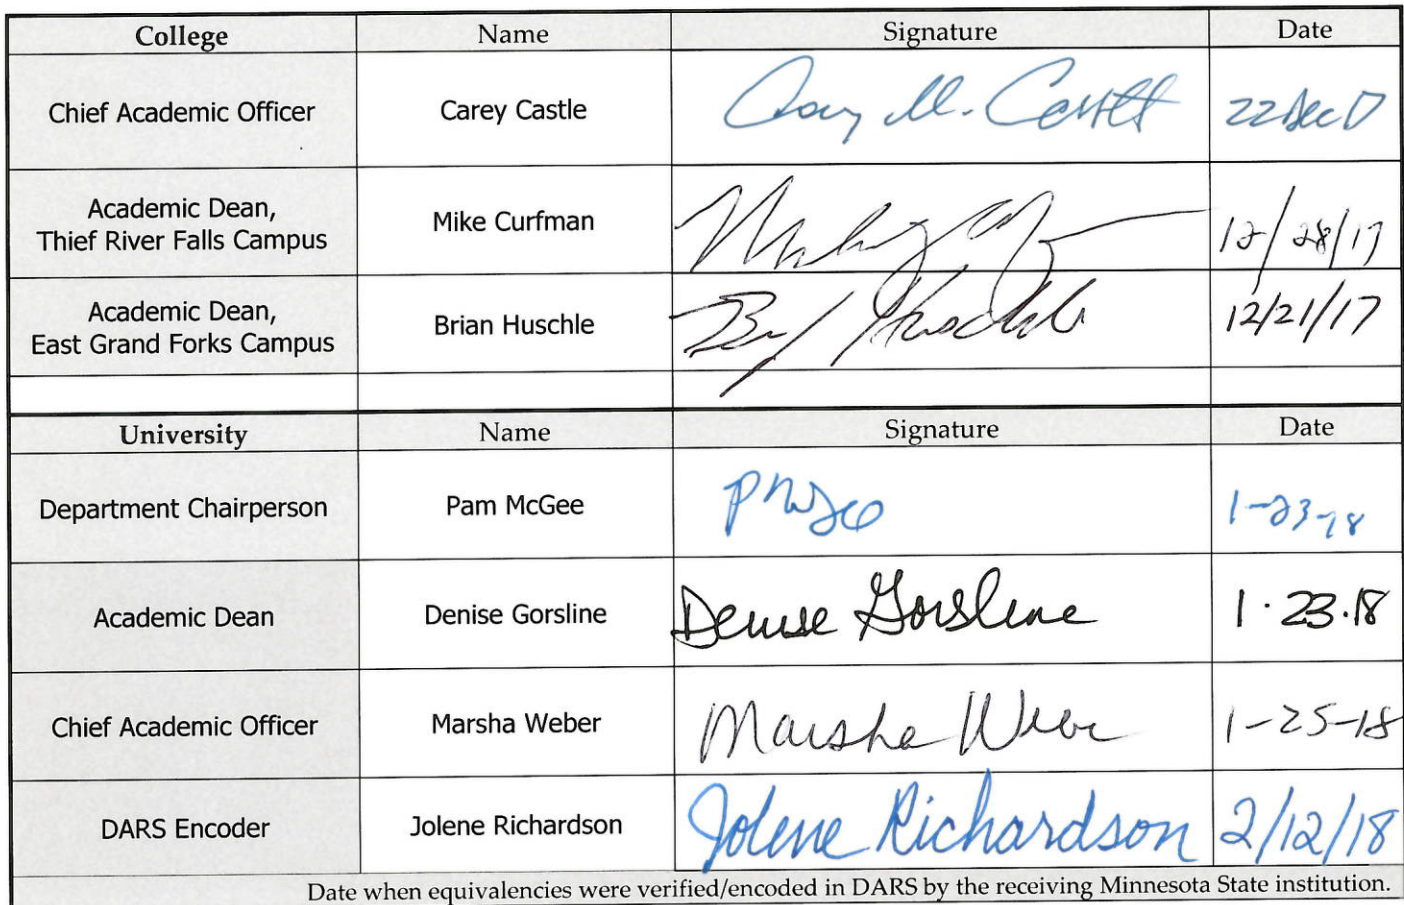 College Name Signature Date
Chief Academic Officer Carey Castle Cary M. Castle 22 Dec 17
Academic Dean,
Thief River Falls Campus Mike Curfman 12/28/17
Academic Dean,
East Grand Forks Campus Brian Huschle B Huschle 12/21/17
University Name Signature Date
Department Chairperson Pam McGee 1-23-18
Academic Dean Denise Gorsline Denise Gorsline 1.23.18
Chief Academic Officer Marsha Weber Marsha Weber 1-25-18
DARS Encoder Jolene Richardson Jolene Richardson 2/12/18
Date when equivalencies were verified/encoded in DARS by the receiving Minnesota State institution.